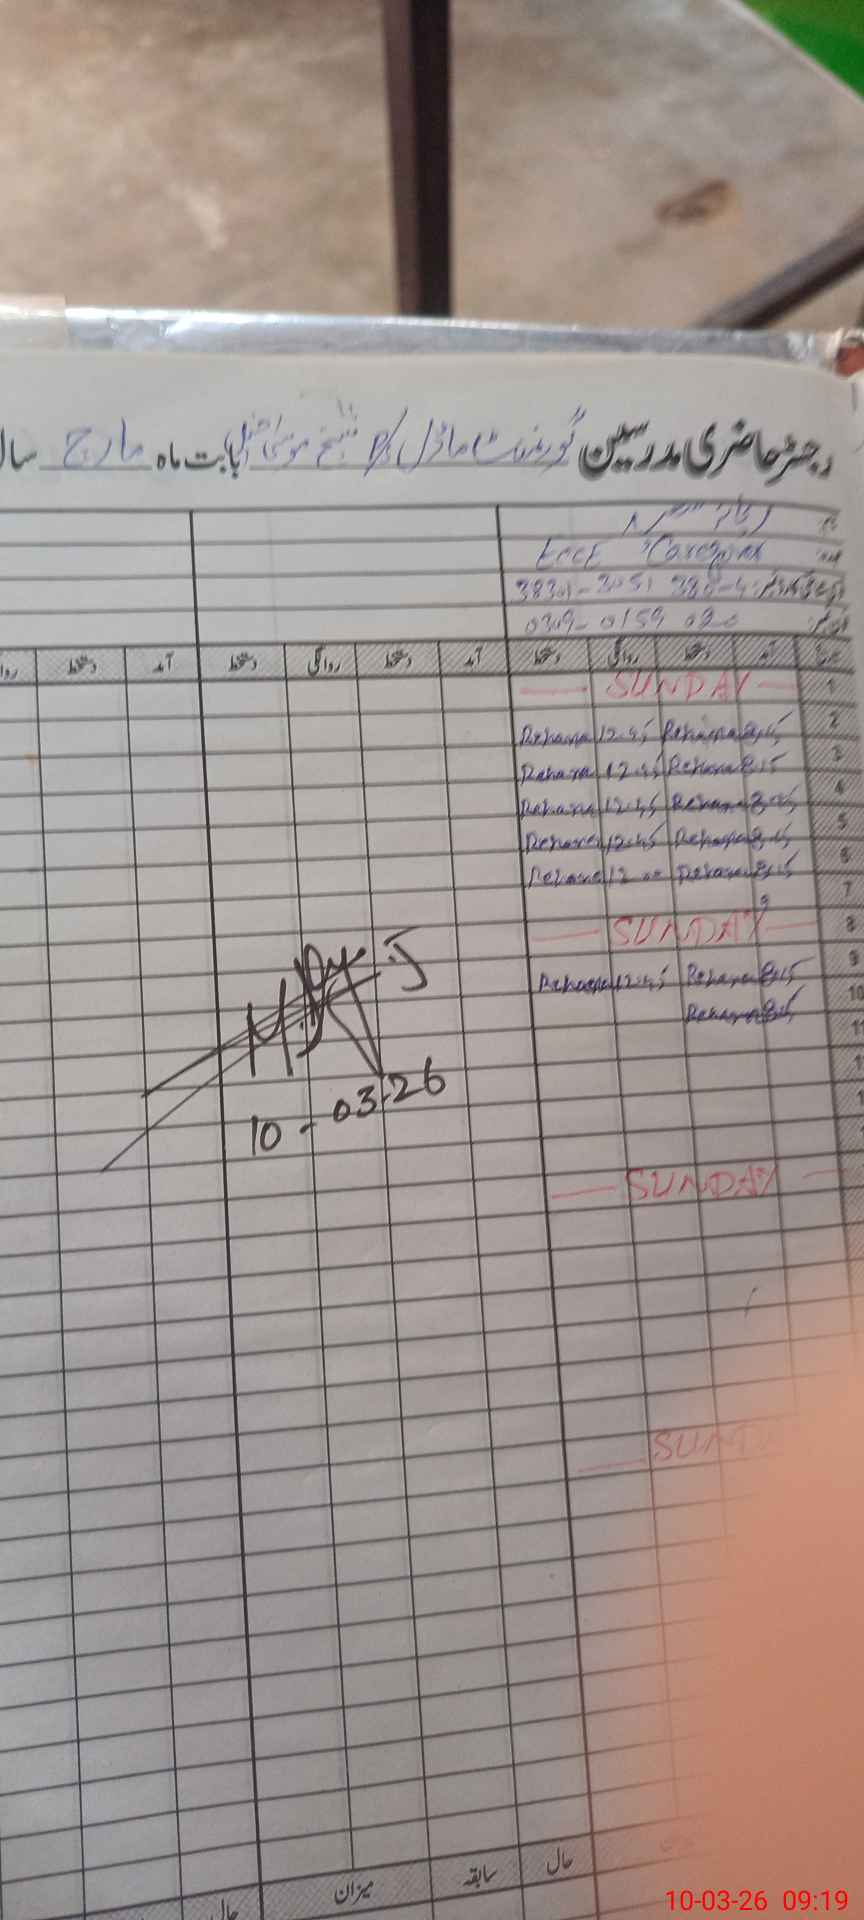 رجسٹر حاضری مدرسین گورنمنٹ ماڈل شیخ موسیٰ بابت ماہ مارچ سال
نام:
ECCE Caregiver
فون نمبر: 0309-0159
تاریخ آمد دستخط روانگی دستخط آمد دستخط روانگی دستخط آمد دستخط
1 SUNDAY
2 8:15 Rehana 12:45 Rehana
3 8:15 Rehana 12:45 Rehana
4 8:15 Rehana 12:45 Rehana
5 8:15 Rehana 12:45 Rehana
6 8:15 Rehana 12:00 Rehana
7
8 SUNDAY
9 8:15 Rehana 12:45 Rehana
10 8:15 Rehana
11
10-03-26
SUNDAY
SUNDA
حال سابقہ میزان حال
10-03-26 09:19